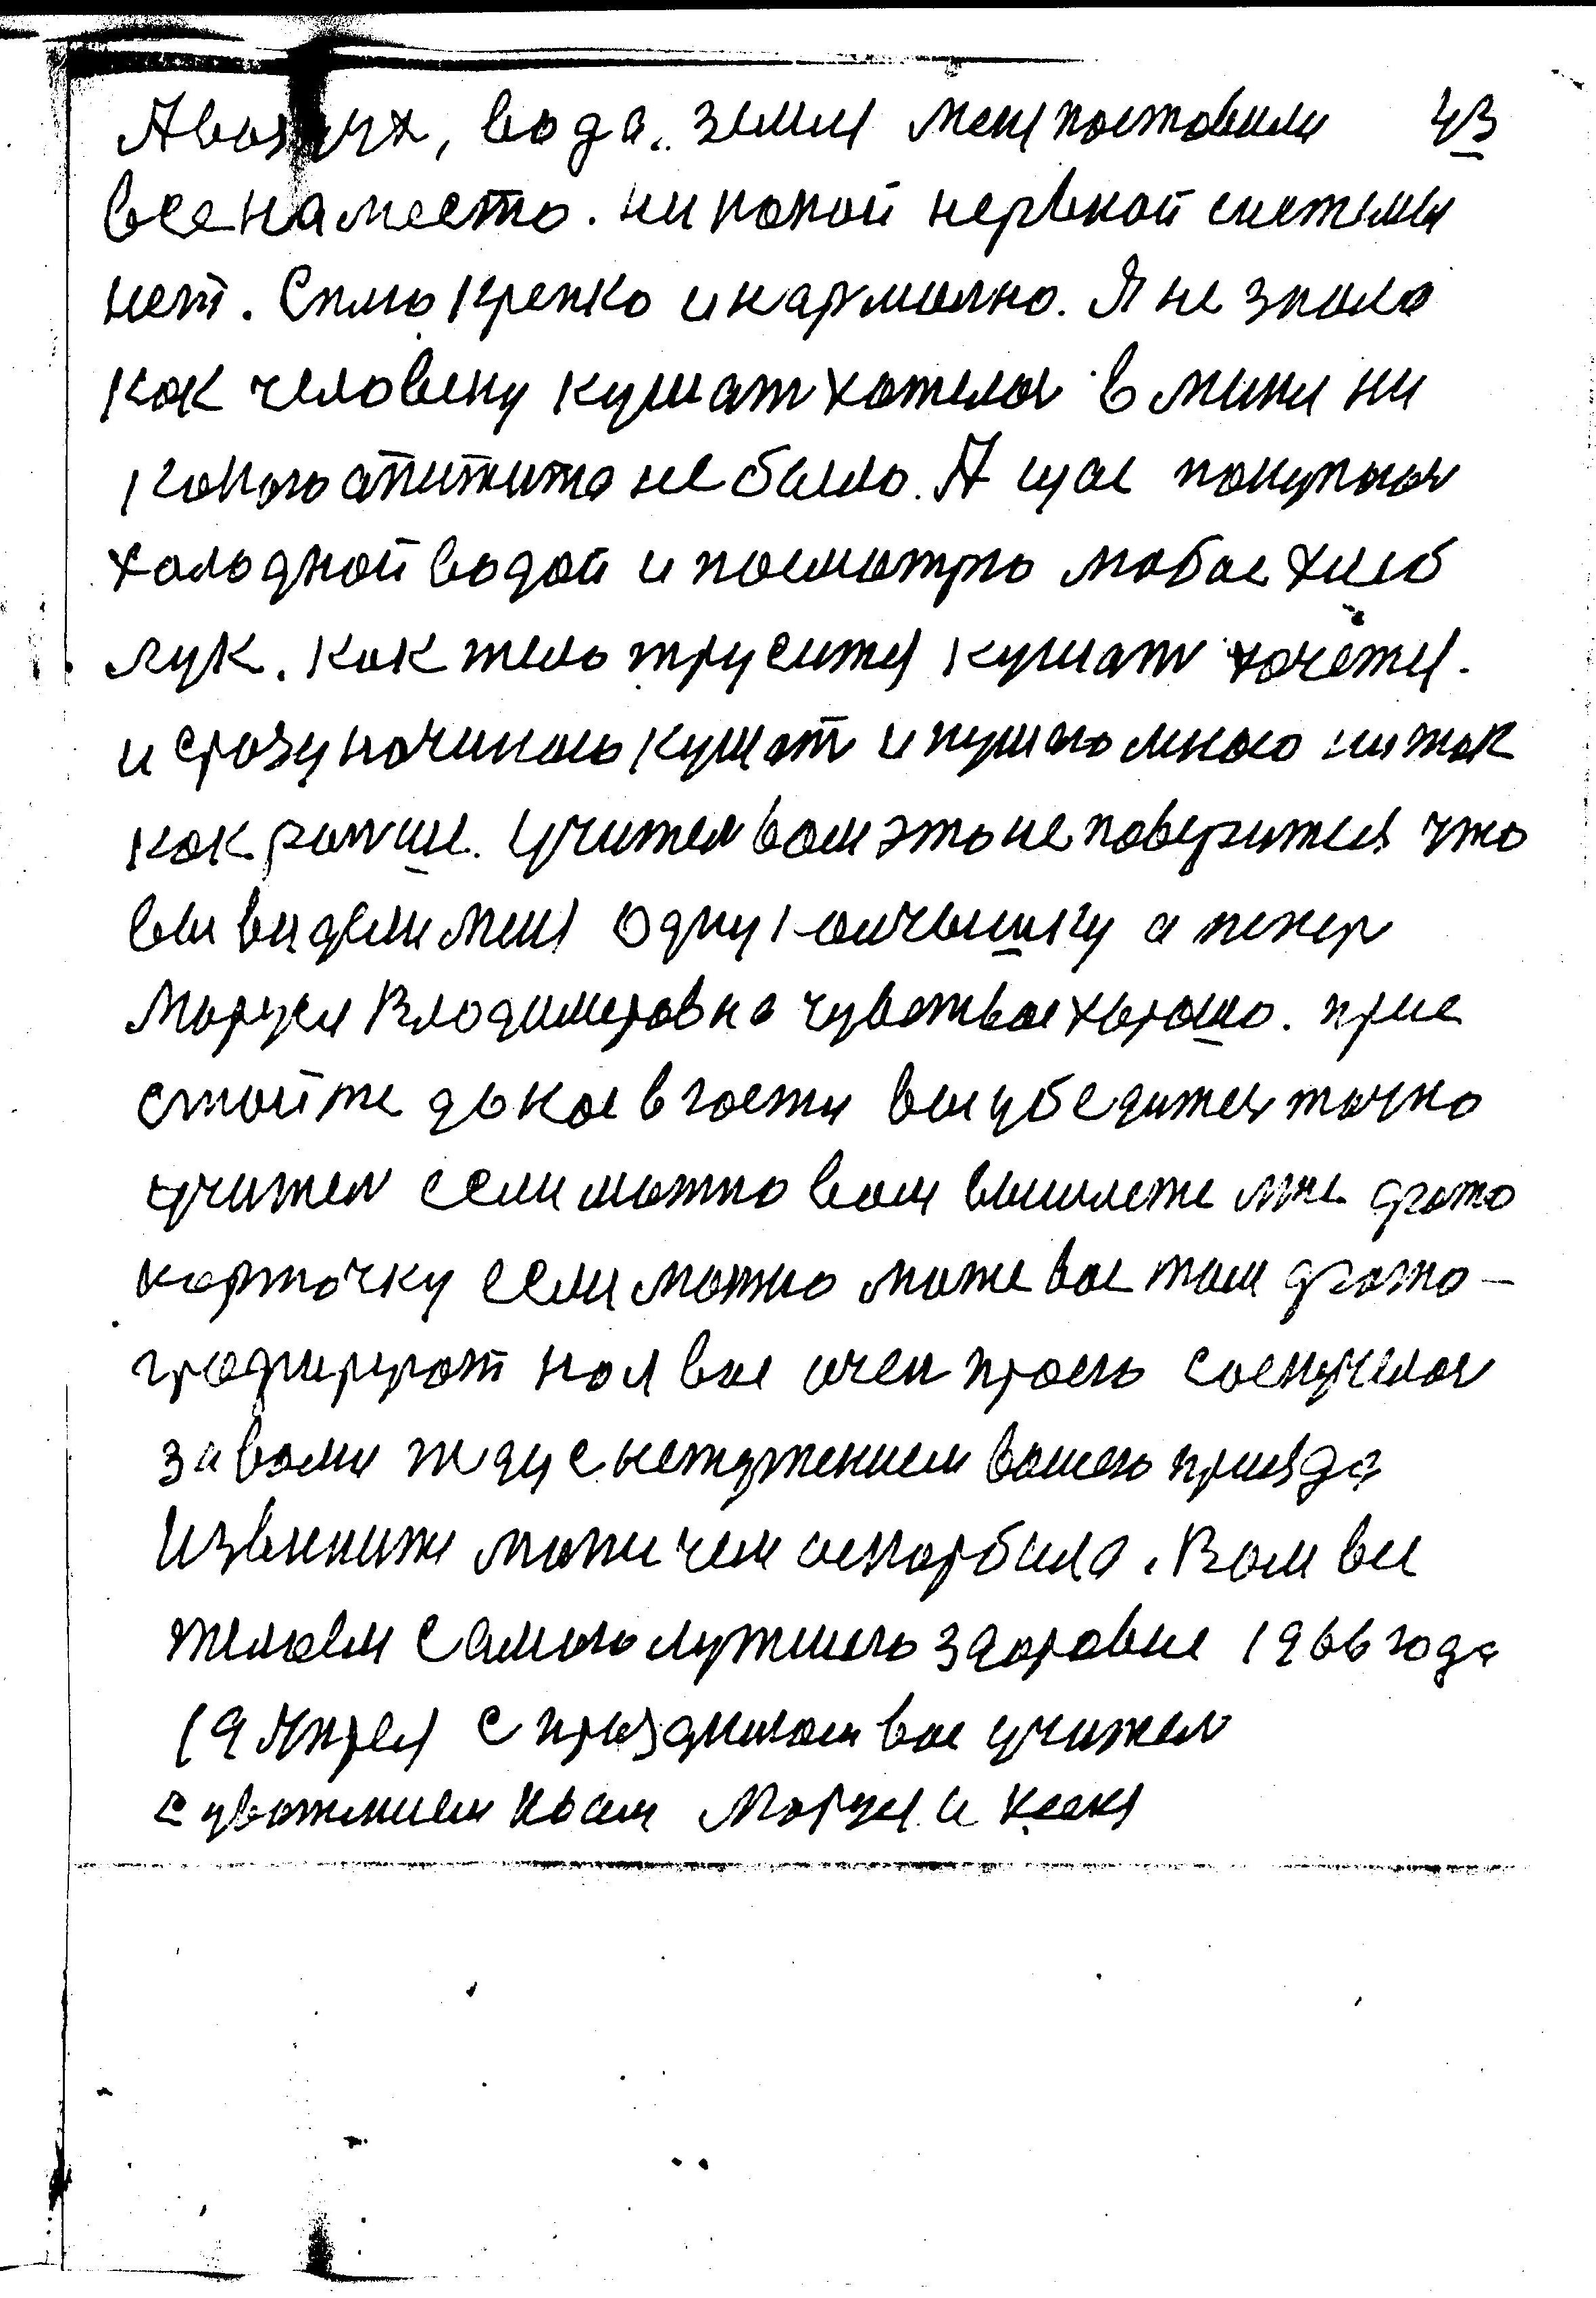 А воздух, вода, земля меня поставили 43
все на место. ни какой нервной системы
нет. Сплю крепко и нармално. Я не знала
как человеку кушат хателос в мини ни
какого апитита не было. А щас покупаюс
халодной водой и посматрю на вас хлеб
лук. как тело трусится кушат хочется.
и сразу начинаю кушат и кушаю много ни так
как ранше. Учител вам это не поверится что
вы видели меня одну а тепер
Маруся Владимеровна чуствает харашо. прие
дь к нас в гости вы убедитес точно
учител если можно вам вышлете мне фото
карточку если можно може вас там фото-
графирурот нам вас очен прось соскучелас
за вами жду с нетерпением вашего приезда
Извините може чем оскарбила. Вам все
желаем самого лутшего здоровие 1966 года
19 Апреля с праздником вас учител
с уважением к вам Маруся и